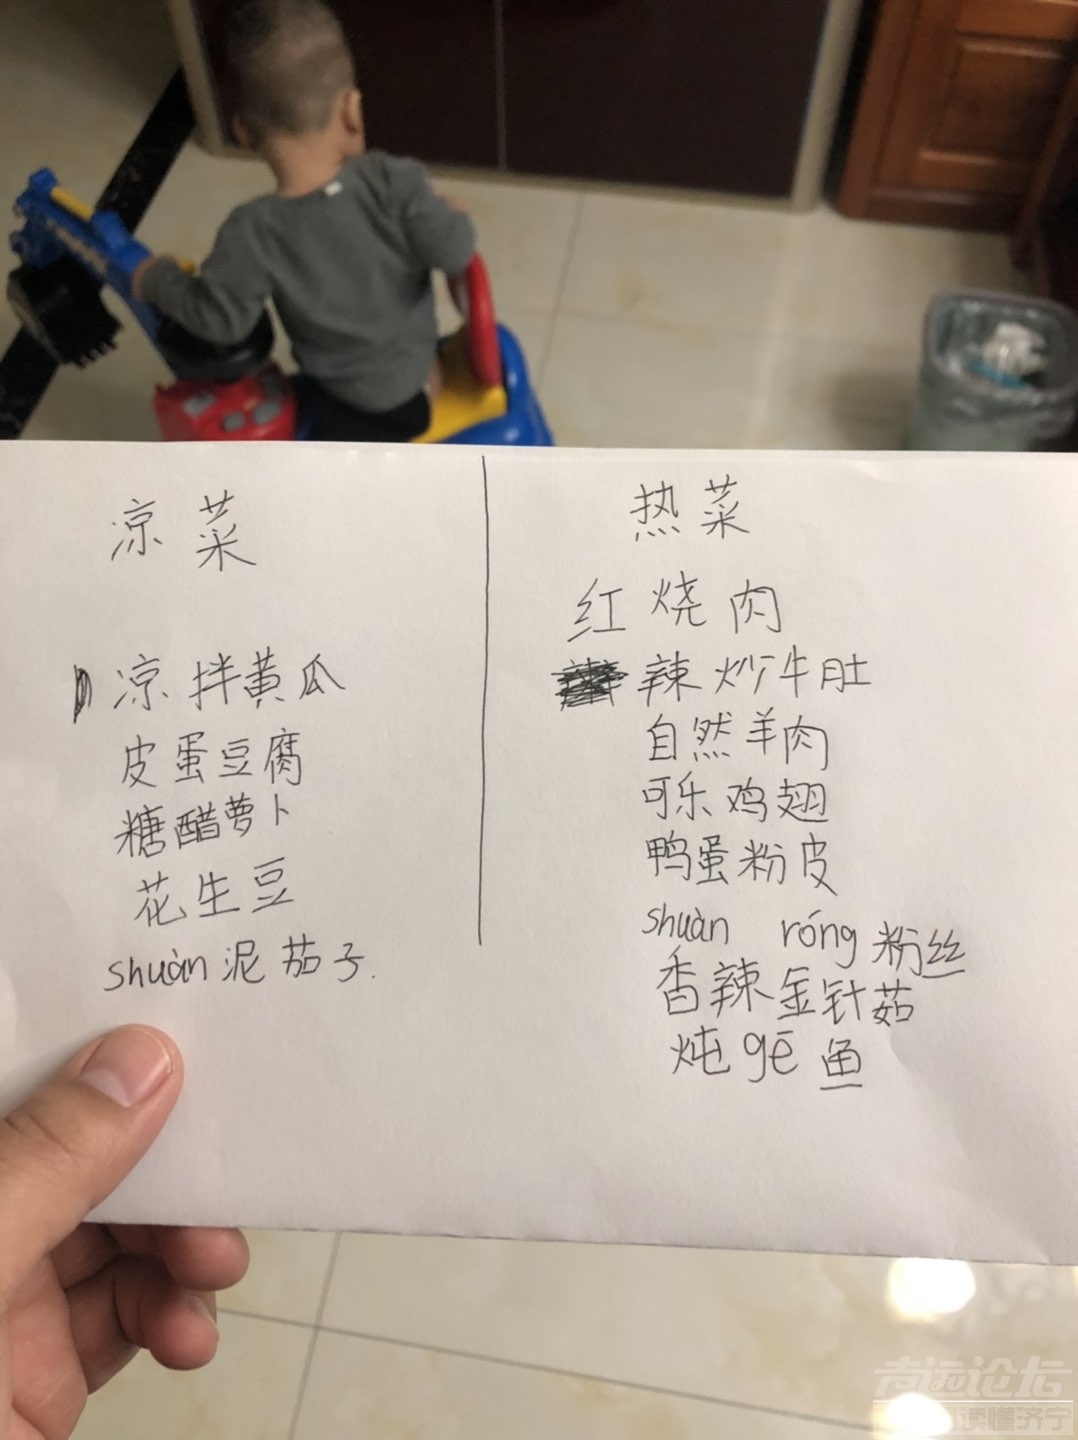 凉菜
凉拌黄瓜
皮蛋豆腐
糖醋萝卜
花生豆
shuàn泥茄子.
热菜
红烧肉
辣炒牛肚
自然羊肉
可乐鸡翅
鸭蛋粉皮
shuàn róng粉丝
香辣金针茹
炖gē鱼
读懂济宁